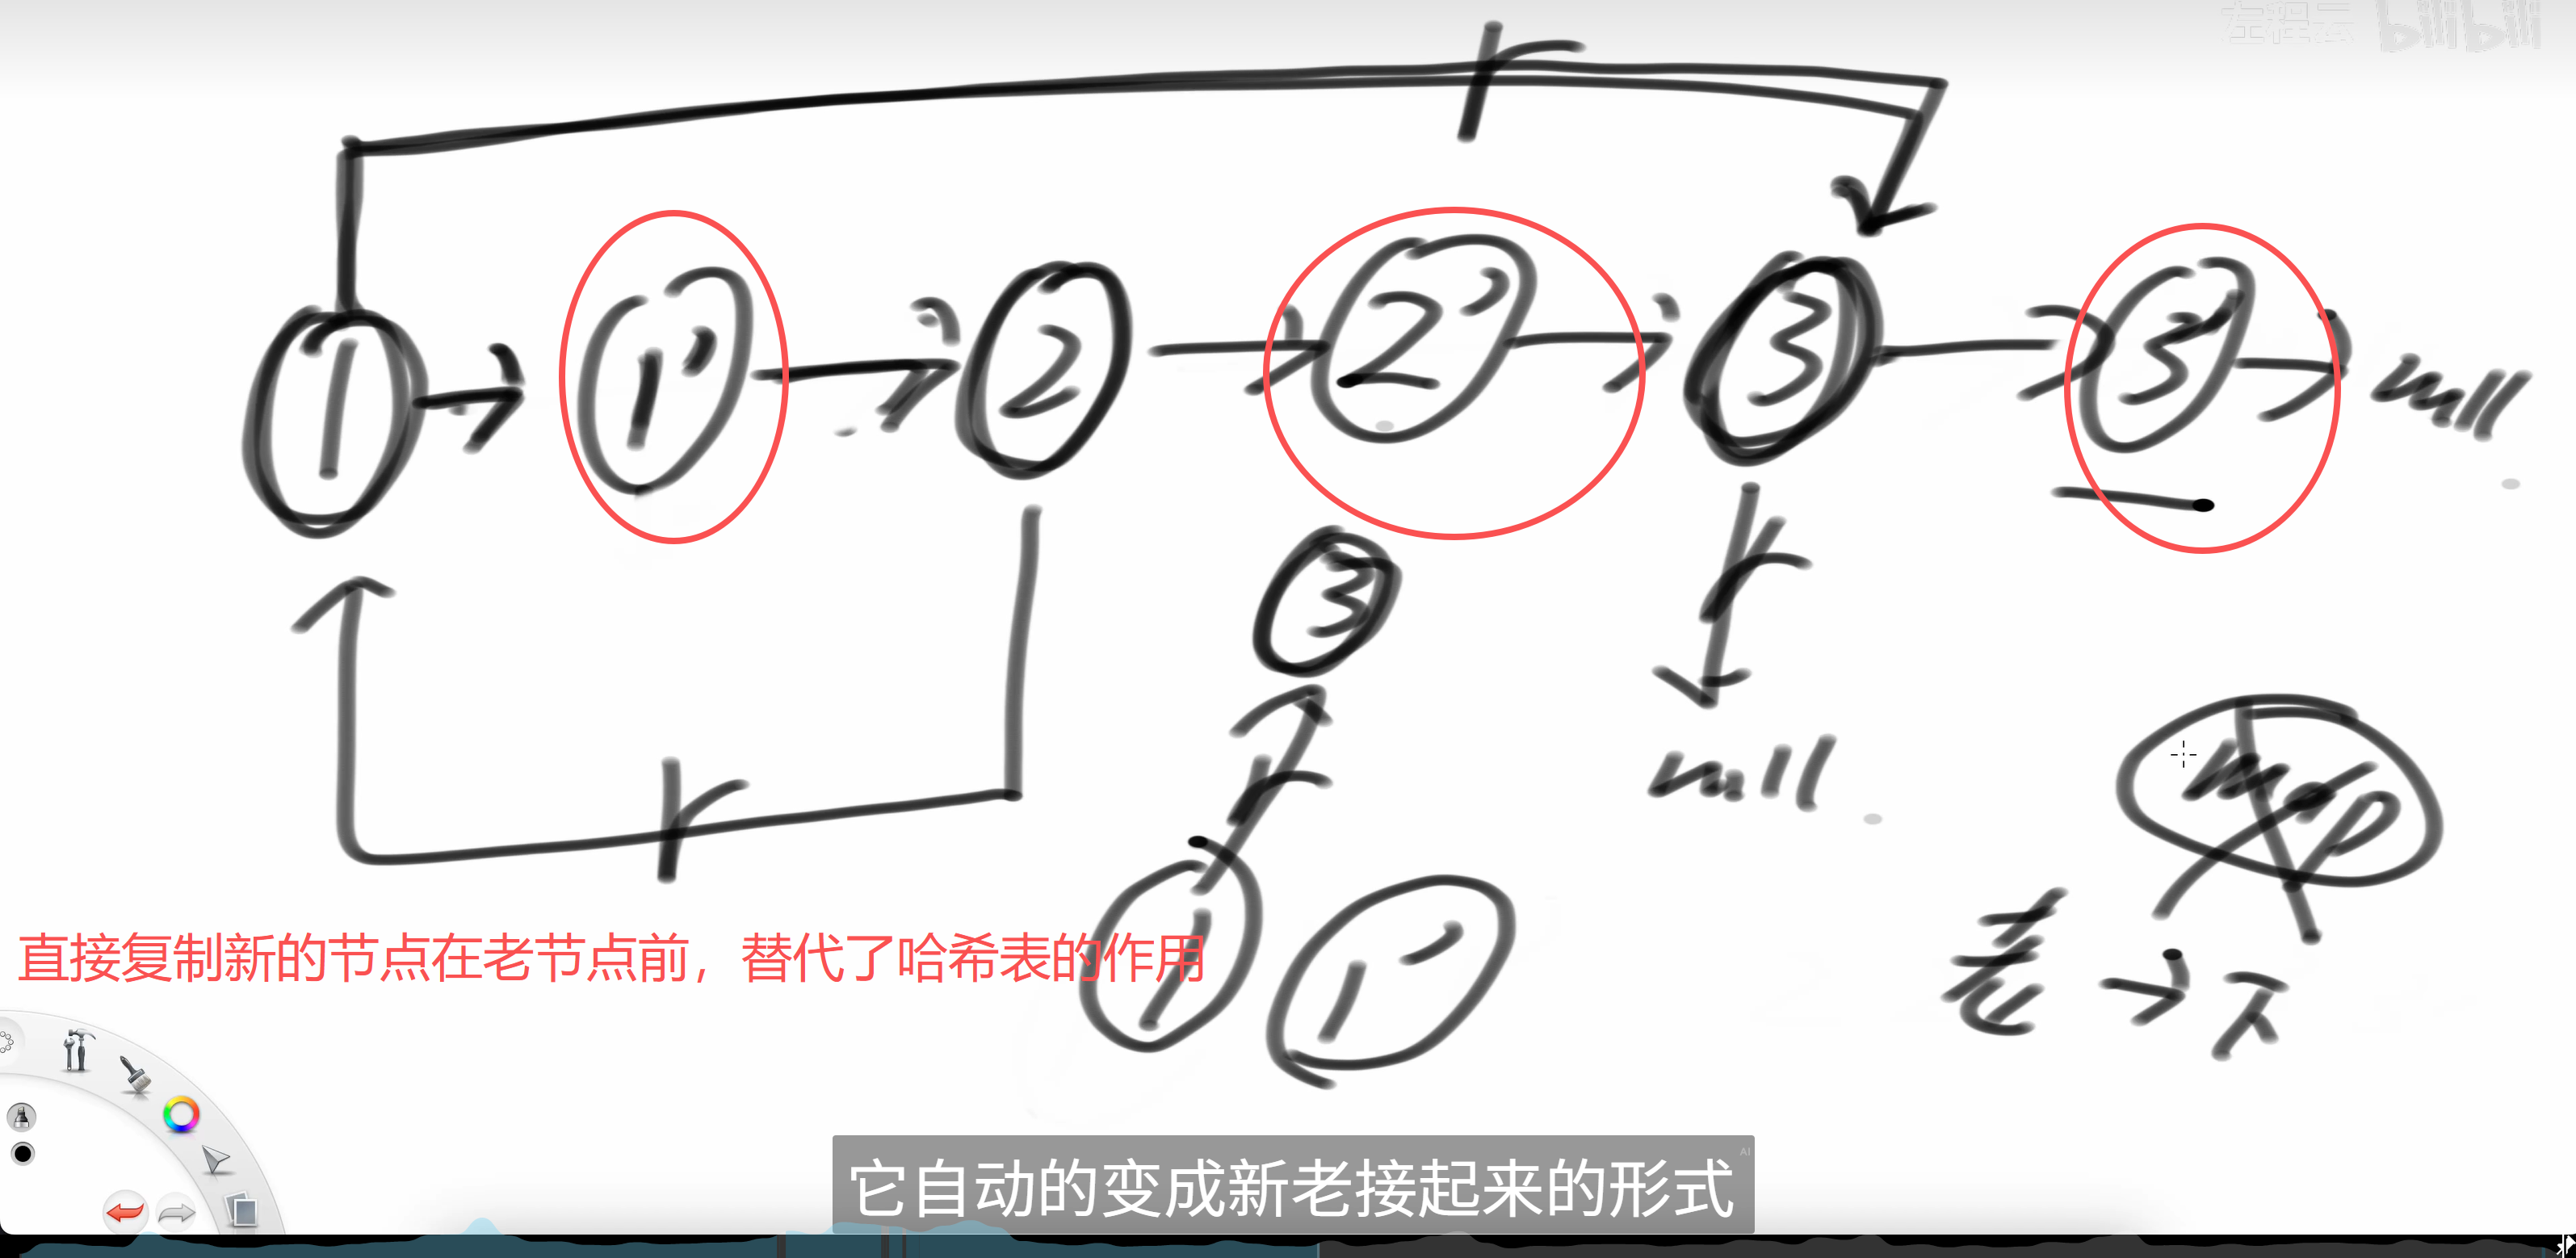 左程云 bilibili
r
1 1' 2 2' 3 3' null
3
r
r
r
null
map
1 1'
直接复制新的节点在老节点前，替代了哈希表的作用
老
AI
它自动的变成新老接起来的形式